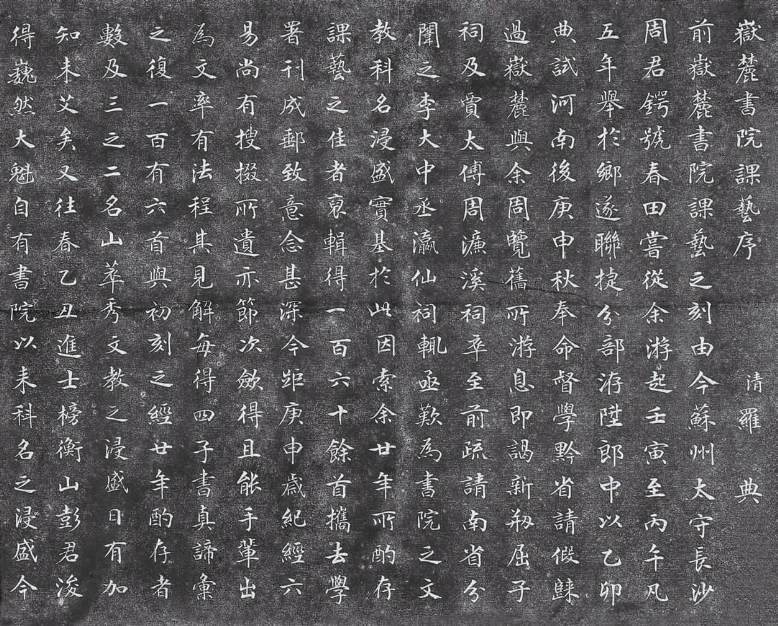 嶽麓書院課藝序　清羅典
前嶽麓書院課藝之刻由今蘇州太守長沙
周君鍔號春田嘗從余游起壬寅至丙午凡
五年舉於鄉遂聯捷分部洊陞郎中以乙卯
典試河南後庚申秋奉命督學黔省請假歸
過嶽麓與余周覽舊所游息即謁新剏屈子
祠及賈太傅周濂溪祠卒至前疏請南省分
闈之李大中丞瀛仙祠輒亟歎為書院之文
教科名浸盛實基於此因索余廿年所酌存
課藝之佳者裒輯得一百六十餘首攜去學
署刊成郵致意念甚深今距庚申歲紀經六
易尚有搜掇所遺亦節次斂得且能手輩出
為文率有法程其見解每得四子書真諦彙
之復一百有六首與初刻之經廿年酌存者
數及三之二名山萃秀文教之浸盛日有加
知未艾矣又往春乙丑進士榜衡山彭君浚
得巍然大魁自有書院以来科名之浸盛今